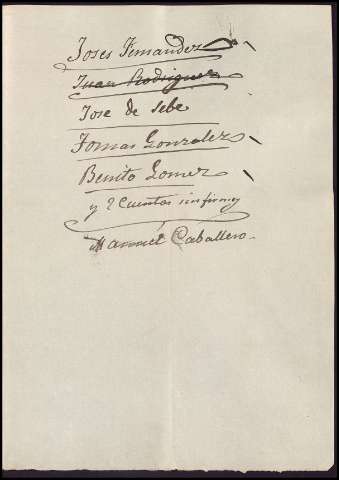 Joses Fernandez
Juan Rodriguez
Jose de Sebe
Tomas Gonzalez
Benito Gomez
y 2 Cuentas sin firmas
Manuel Caballero.